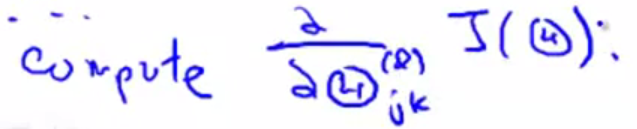 compute ∂/∂Θ_jk^(l) J(Θ):